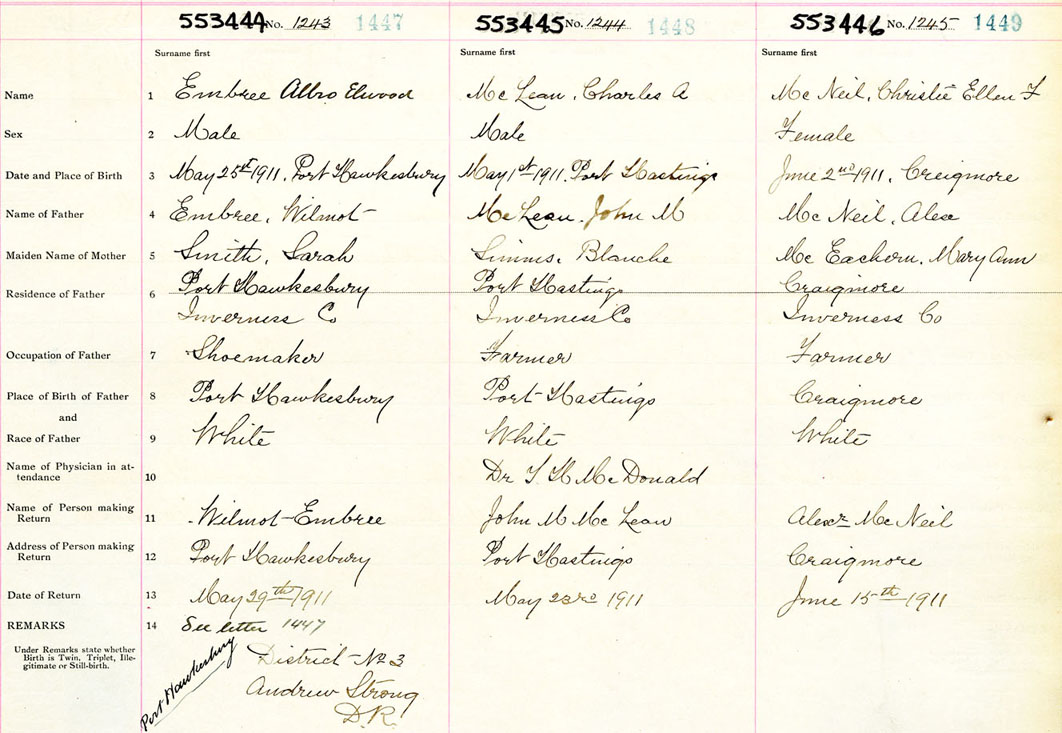 553444 No. 1243 1447 553445 No. 1244 1448 553446 No. 1245 1449
Surname first Surname first Surname first
Name 1 Embree Albro Elwood Mc Lean, Charles A Mc Neil, Christie Ellen F
Sex 2 Male Male Female
Date and Place of Birth 3 May 25th 1911, Port Hawkesbury May 1st 1911. Port Hastings June 2nd 1911, Creigmore
Name of Father 4 Embree, Wilmot Mc Lean. John M Mc Neil, Alex
Maiden Name of Mother 5 Smith, Sarah Simms, Blanche Mc Eachorn, Mary Ann
Residence of Father 6 Port Hawkesbury Port Hastings Craigmore
Inverness Co Inverness Co Inverness Co
Occupation of Father 7 Shoemaker Farmer Farmer
Place of Birth of Father 8 Port Hawkesbury Port Hastings Craigmore
and
Race of Father 9 White White White
Name of Physician in at-
tendance 10 Dr McDonald
Name of Person making
Return 11 Wilmot Embree John M Mc Lean Alexr Mc Neil
Address of Person making
Return 12 Port Hawkesbury Port Hastings Craigmore
Date of Return 13 May 29th 1911 May 23rd 1911 June 15th 1911
REMARKS 14 See letter 1447
Under Remarks state whether
Birth is Twin. Triplet, Ille-
gitimate or Still-birth.
Port Hawkesbury
District No 3
Andrew Strong
D.R.